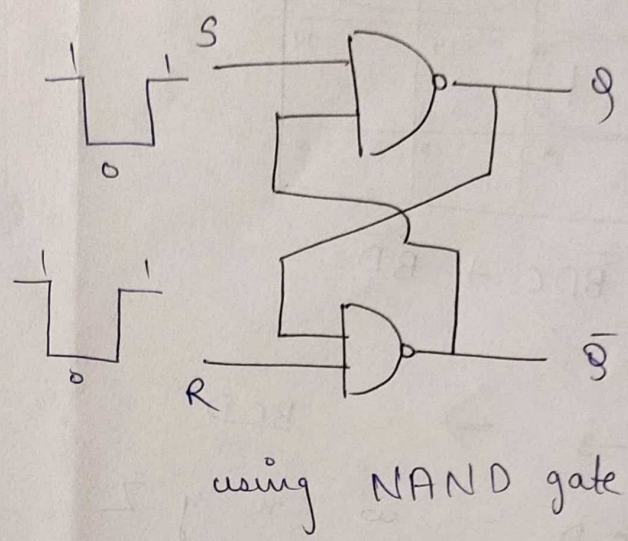 S
1 1
0
Q
1 1
0
R
Q̄
using NAND gate